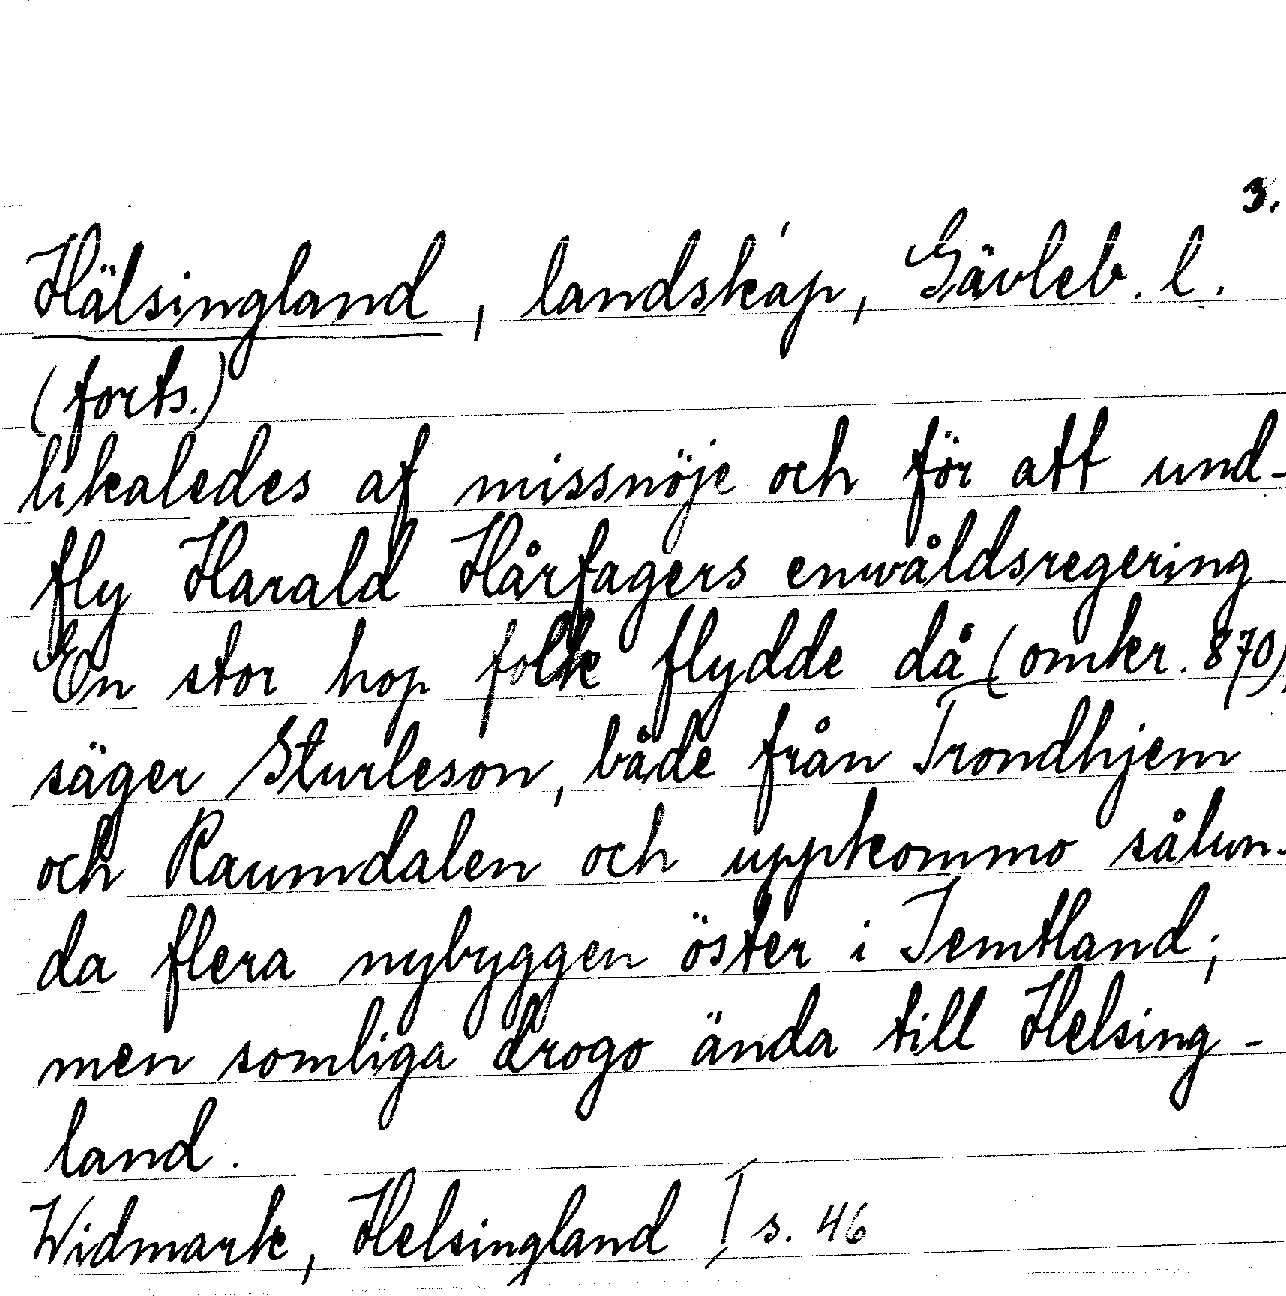 3.
Hälsingland, landskap, Gävleb. l.
(forts.)
likaledes af missnöje och för att und-
fly Harald Hårfagers enwåldsregering
En stor hop folk flydde då (omkr. 870),
säger Sturleson, både från Trondhjem
och Raumdalen och uppkommo sålun-
da flera nybyggen öster i Jemtland;
men somliga drogo ända till Helsing-
land.
Widmark, Helsingland I s. 46